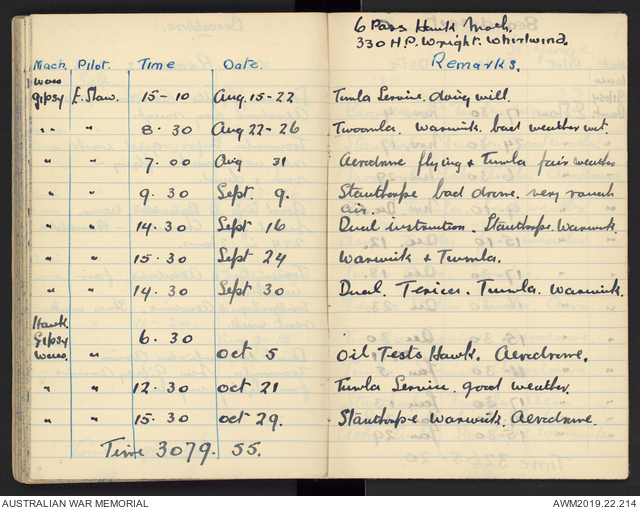 6 Pass Hawk Mach.
330 H.P. Wright. Whirlwind.
Mach. Pilot. Time Date. Remarks.
Gipsy E. Slaw. 15-10 Aug. 15-22 Tumla Service. doing will.
" " 8. 30 Aug 22-26 Twoomla. Warwick. bad weather wet.
" " 7. 00 Aug 31 Aerodrome flying & Tumla fair weather
" " 9. 30 Sept. 9. Stanthorpe bad drome. very rough
air.
" " 14. 30 Sept 16 Dual instruction. Stanthorpe. Warwick.
" " 15. 30 Sept 24 Warwick & Tumla.
" " 14. 30 Sept 30 Dual. Texices. Tumla. Warwick.
Hawk
Gipsy 6. 30
" Oct 5 Oil Tests Hawk. Aerodrome.
" " 12. 30 Oct 21 Tumla Service. good weather.
" " 15. 30 Oct 29. Stanthorpe Warwick. Aerodrome.
Time 3079. 55.
AUSTRALIAN WAR MEMORIAL AWM2019.22.214